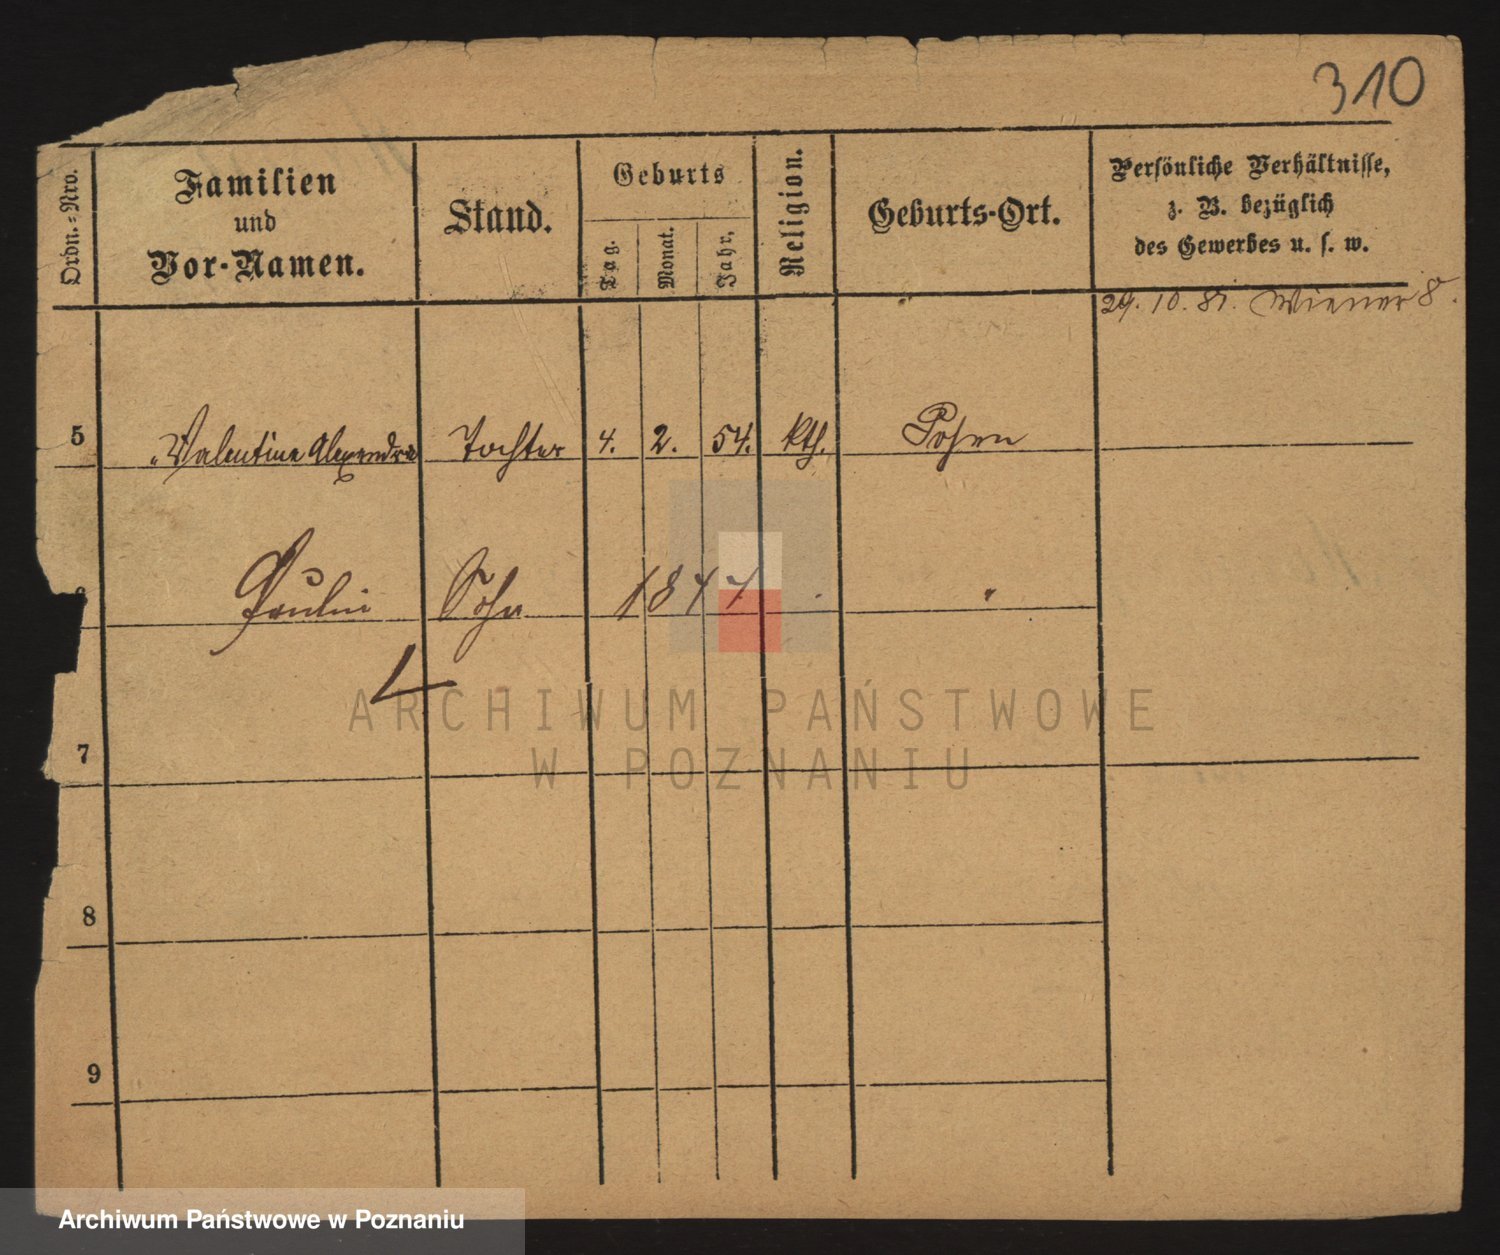 310
Ordn.=Nro.
Familien
und
Vor-Namen.
Stand.
Geburts
Tag.
Monat.
Jahr.
Religion.
Geburts-Ort.
Persönliche Verhältnisse,
z. B. bezüglich
des Gewerbes u. s. w.
29. 10. 81. Wiener 8.
5 Valentine Alexandra Tochter 4. 2. 54. kth. Posen
Paulin Sohn 1847 "
7
8
9
ARCHIWUM PAŃSTWOWE
W POZNANIU
Archiwum Państwowe w Poznaniu